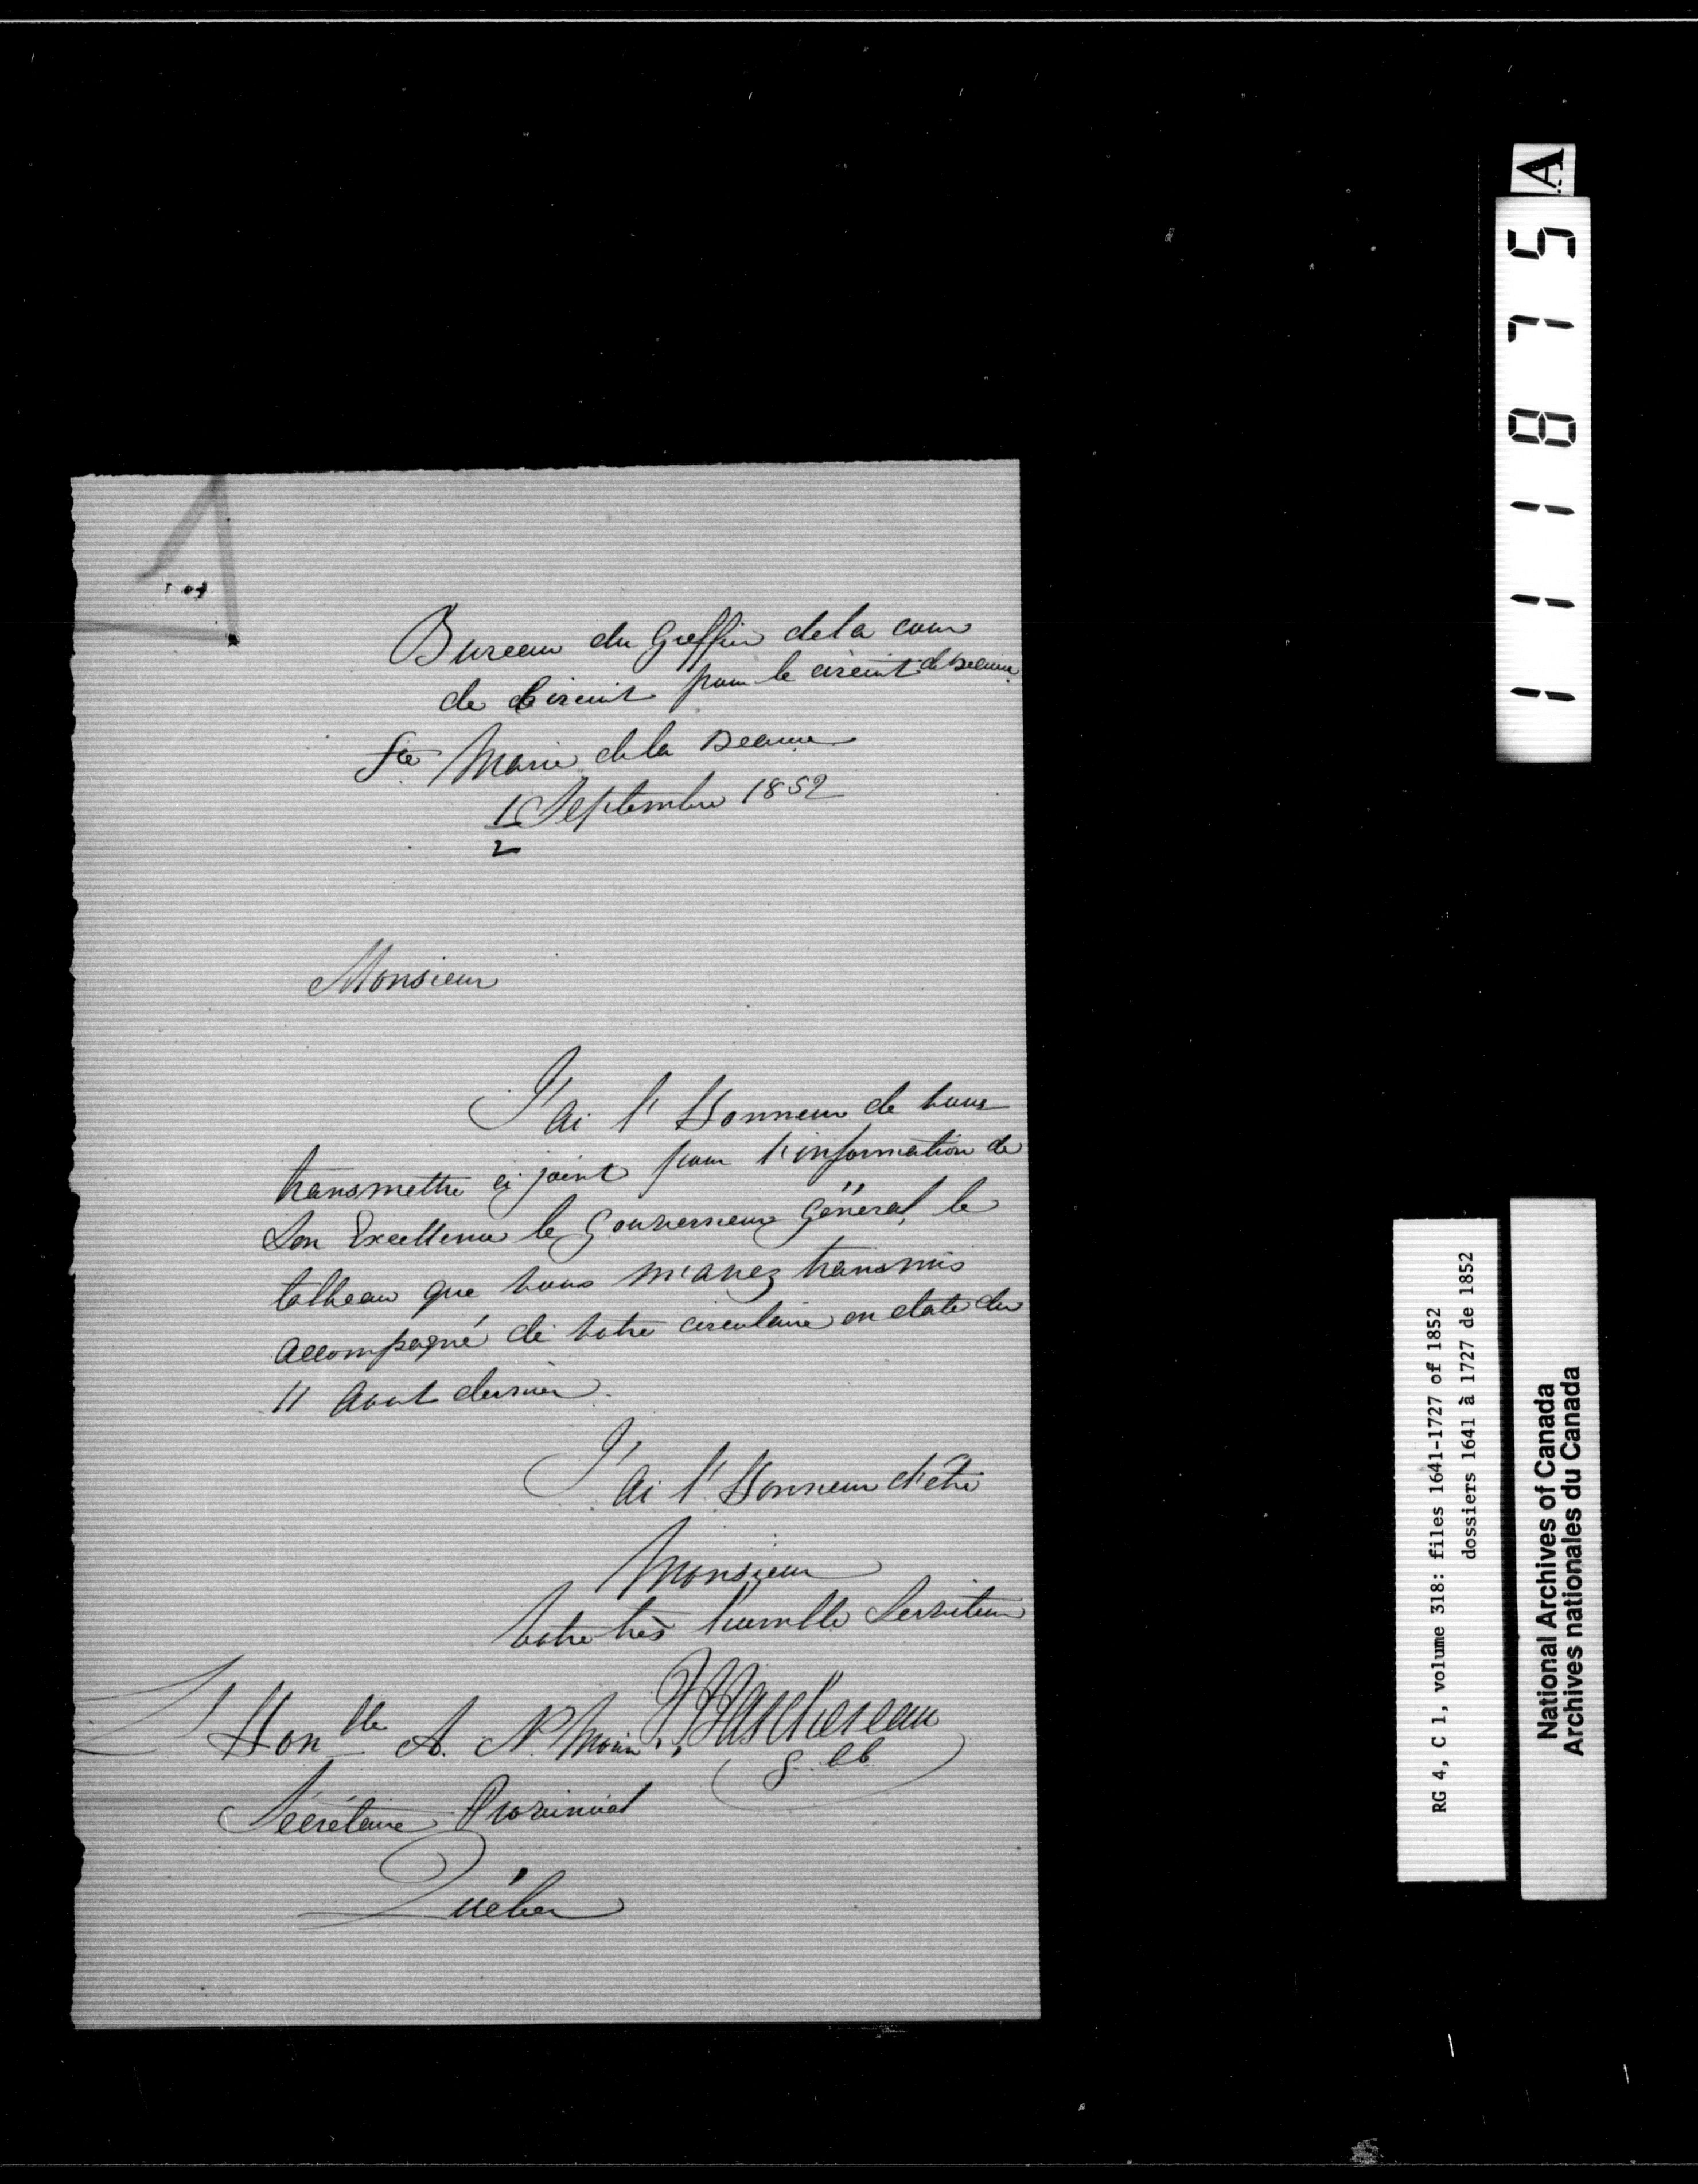 Bureau du Greffier de la cour
de Circuit pour le circuit de Beauce
Ste Marie de la Beauce
1 Septembre 1852
2
Monsieur
J'ai l'Honneur de vous
transmettre ci joint pour l'information de
Son Excellence le Gouverneur Général, le
tableau que vous m'avez transmis
accompagné de votre circulaire en date du
11 Aout dernier.
J'ai l'Honneur d'être
Monsieur
Votre très humble Serviteur
Taschereau
G. C C
L'Honble A. N. Morin
Sécrétaire Provincial
Québec
A
111875
RG 4, C 1, volume 318: files 1641-1727 of 1852
dossiers 1641 à 1727 de 1852
National Archives of Canada
Archives nationales du Canada